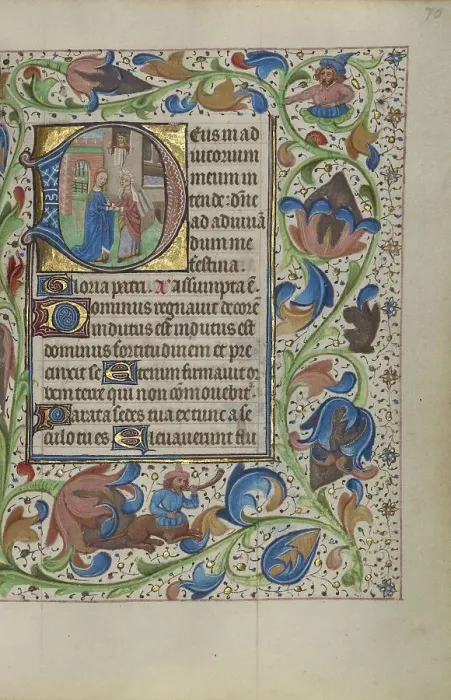 70
Deus in ad
iutorium
meum in
tende: dñe
ad adiuuã
dum me
festina.
Gloria patri. Aª assumpta ẽ.
Dominus regnauit decorẽ
indutus est indutus est
dominus fortitudinem et pre
cinxit se Etenim firmauit or
bem terre qui non cõmouebitᷣ
Parata sedes tua ex tunc a se
culo tu es Eleuauerunt flu